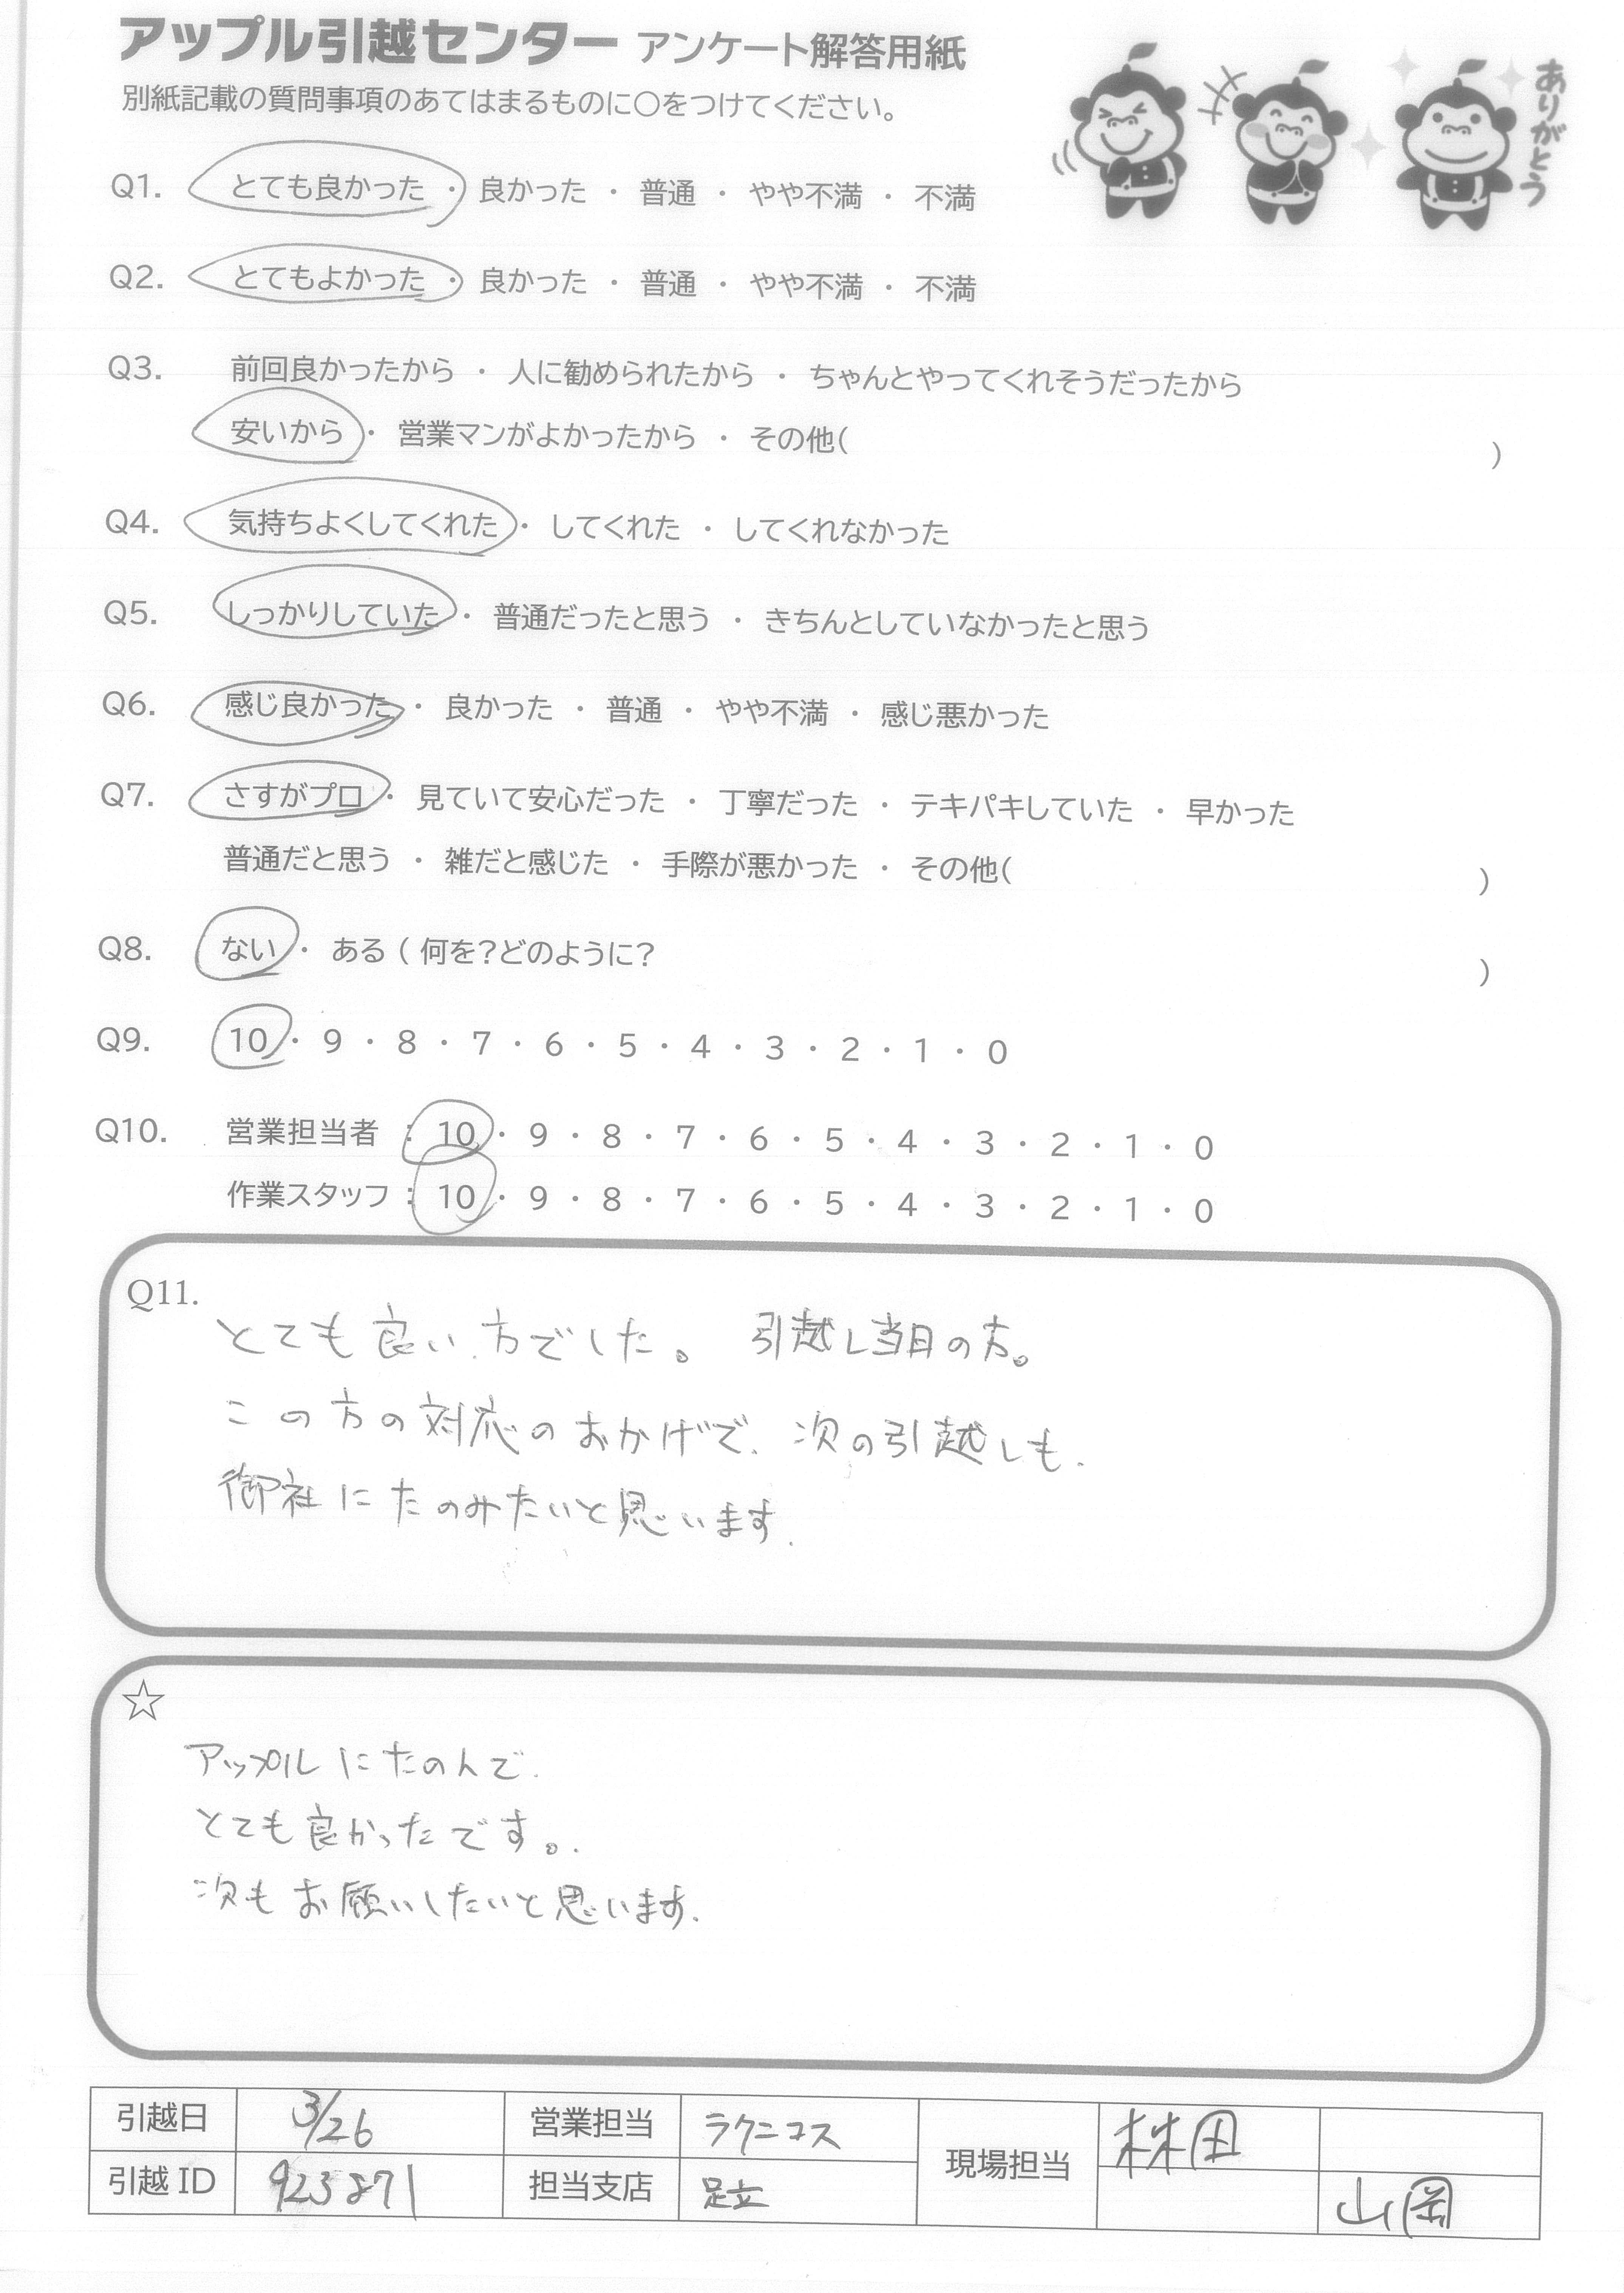 アップル引越センター アンケート解答用紙
ありがとう
別紙記載の質問事項のあてはまるものに○をつけてください。
Q1. とても良かった ・ 良かった ・ 普通 ・ やや不満 ・ 不満
Q2. とてもよかった ・ 良かった ・ 普通 ・ やや不満 ・ 不満
Q3. 前回良かったから ・ 人に勧められたから ・ ちゃんとやってくれそうだったから
安いから ・ 営業マンがよかったから ・ その他( )
Q4. 気持ちよくしてくれた ・ してくれた ・ してくれなかった
Q5. しっかりしていた ・ 普通だったと思う ・ きちんとしていなかったと思う
Q6. 感じ良かった ・ 良かった ・ 普通 ・ やや不満 ・ 感じ悪かった
Q7. さすがプロ ・ 見ていて安心だった ・ 丁寧だった ・ テキパキしていた ・ 早かった
普通だと思う ・ 雑だと感じた ・ 手際が悪かった ・ その他( )
Q8. ない ・ ある ( 何を?どのように? )
Q9. 10 ・ 9 ・ 8 ・ 7 ・ 6 ・ 5 ・ 4 ・ 3 ・ 2 ・ 1 ・ 0
Q10. 営業担当者 : 10 ・ 9 ・ 8 ・ 7 ・ 6 ・ 5 ・ 4 ・ 3 ・ 2 ・ 1 ・ 0
作業スタッフ : 10 ・ 9 ・ 8 ・ 7 ・ 6 ・ 5 ・ 4 ・ 3 ・ 2 ・ 1 ・ 0
Q11.
とても良い方でした。 引越し当日の方。
この方の対応のおかげで、次の引越しも、
御社にたのみたいと思います.
☆
アップルにたのんで.
とても良かったです。.
次もお願いしたいと思います.
引越日 3/26 営業担当 ラクニコス 現場担当 株田
引越 ID 923871 担当支店 足立 山岡